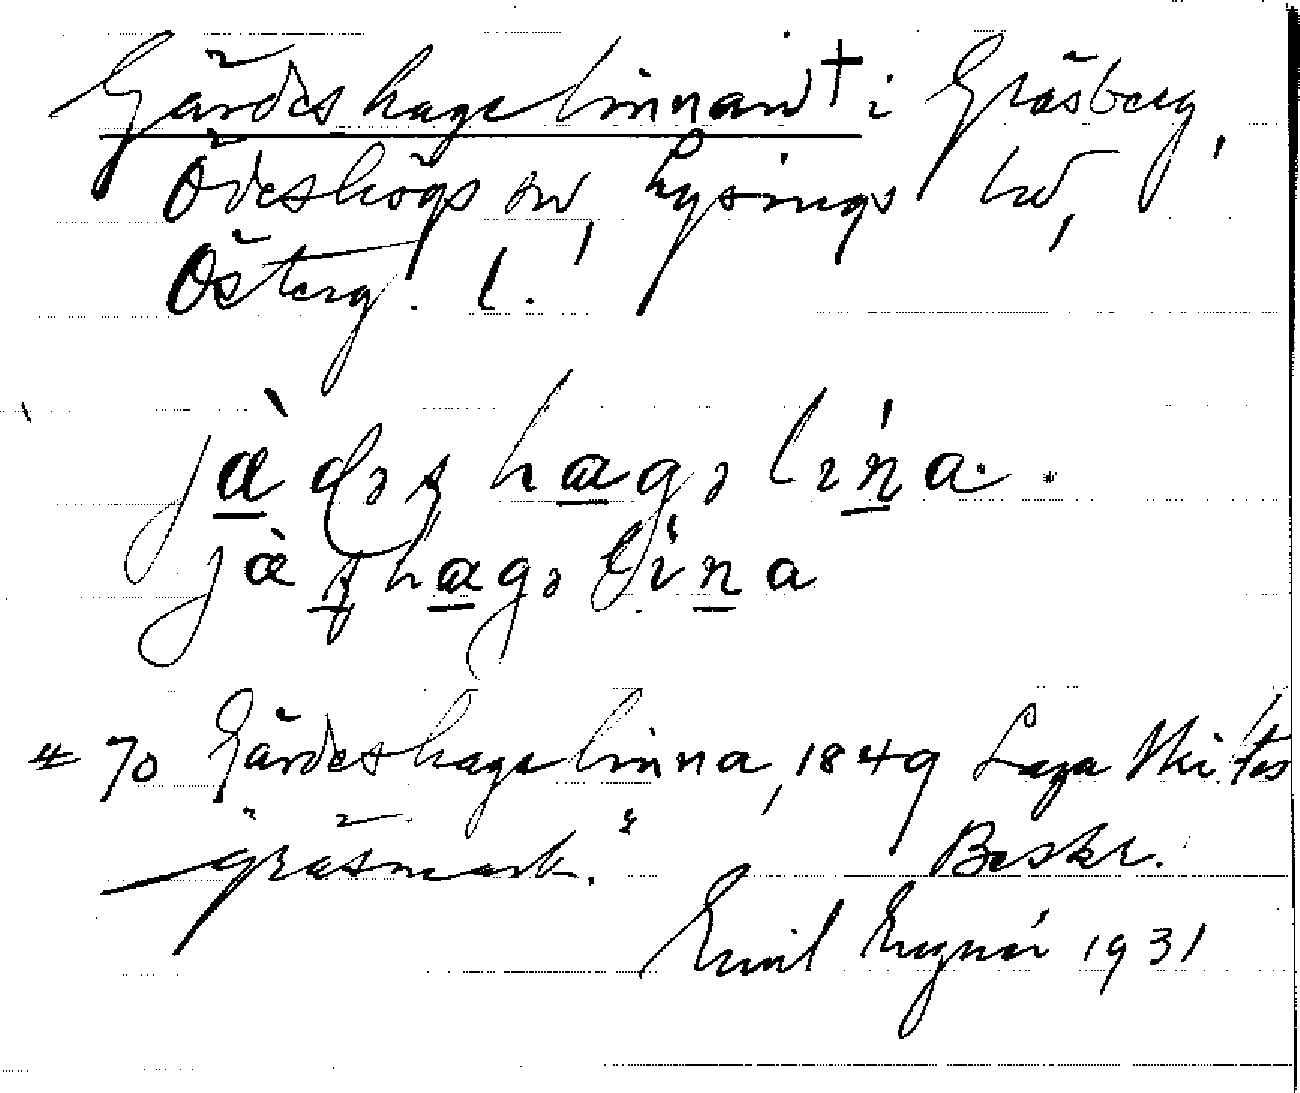 Gärdeshagelinnan † i Gräsberg,
Ödeshögs sn, Lysings hd,
Österg. l.
jæ̀dəs hagə lìna.
jæ̀s hagə lìna
# 70 Gärdeshagelinna, 1849 Laga Skiftes
"gräsmark." Beskr.
Emil 1931